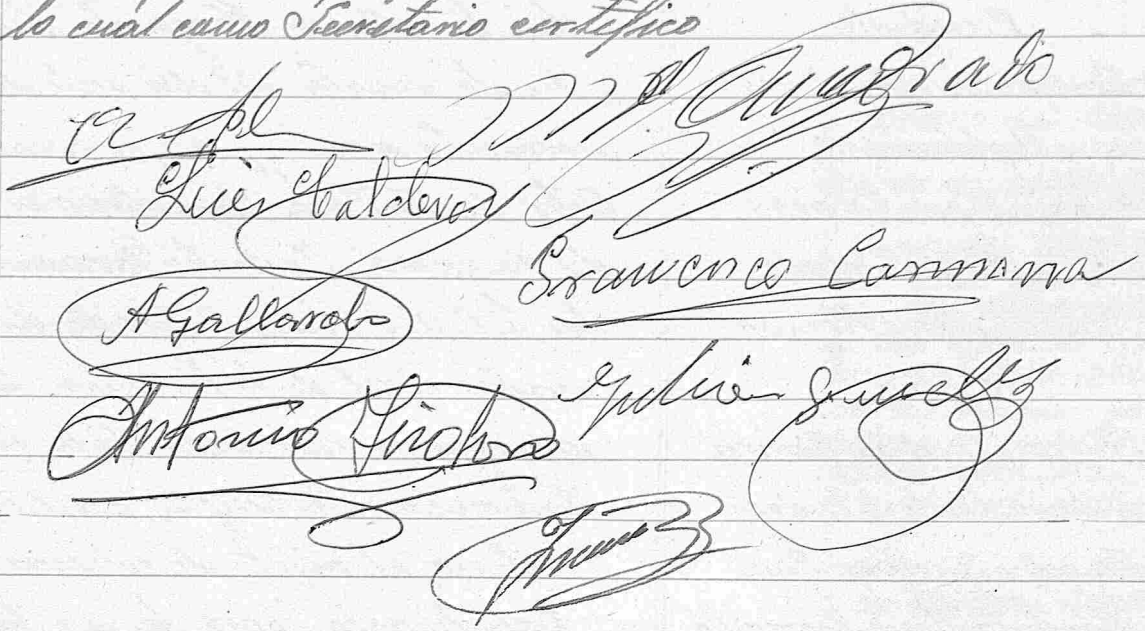 lo cuál como Secretario certifico
M.el Cuadrado
Luis Calderon
Francisco Carmona
A Gallardo
Julian Gonzalez
Antonio